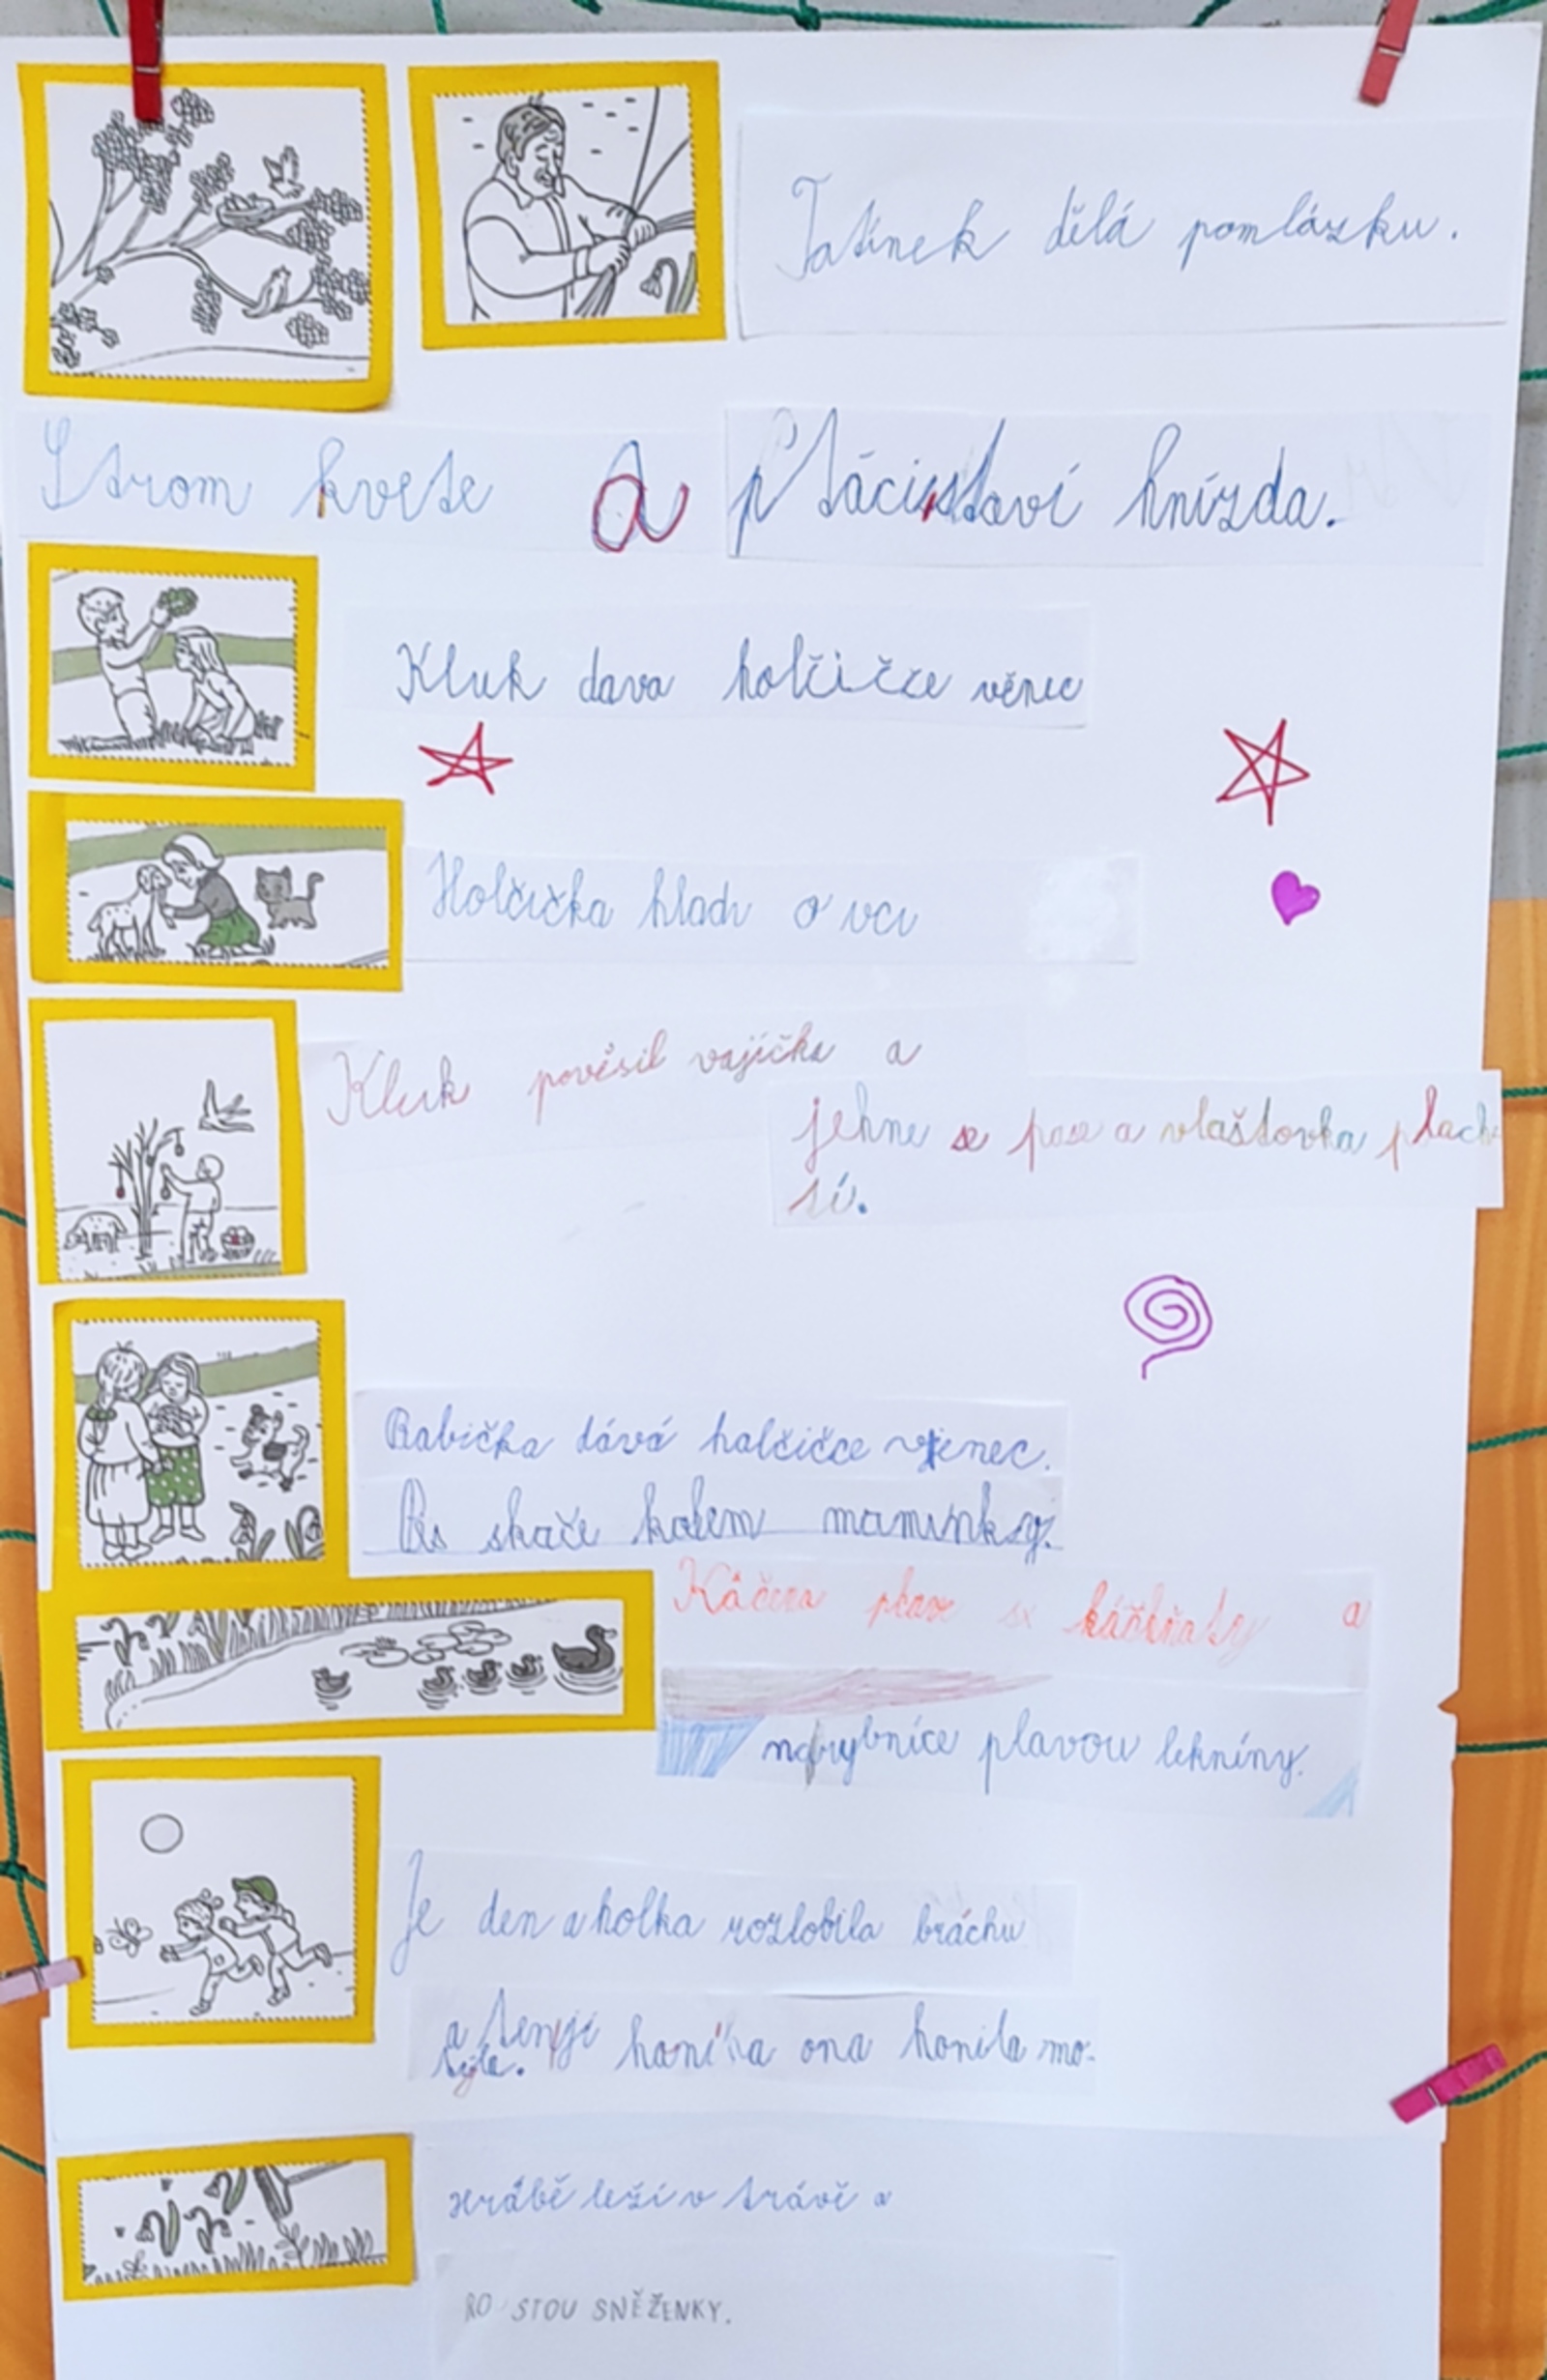 Tatínek dělá pomlázku.
Strom kvete a ptáci staví hnízda.
Kluk dava holčičce věnec
Holčička hladi ovci
Kluk pověsil vajíčka a
jehne se pase a vlaštovka plach-
tí.
Babička dává halčičce vjenec.
Pes skače kolem maminky.
Káčena plave s káčeňaty a
na rybníce plavou lekníny.
Je den a holka rozlobila bráchu
a ten ji honil a ona honila mo-
týla.
Hrábě leží v trávě a
ROSTOU SNĚŽENKY.